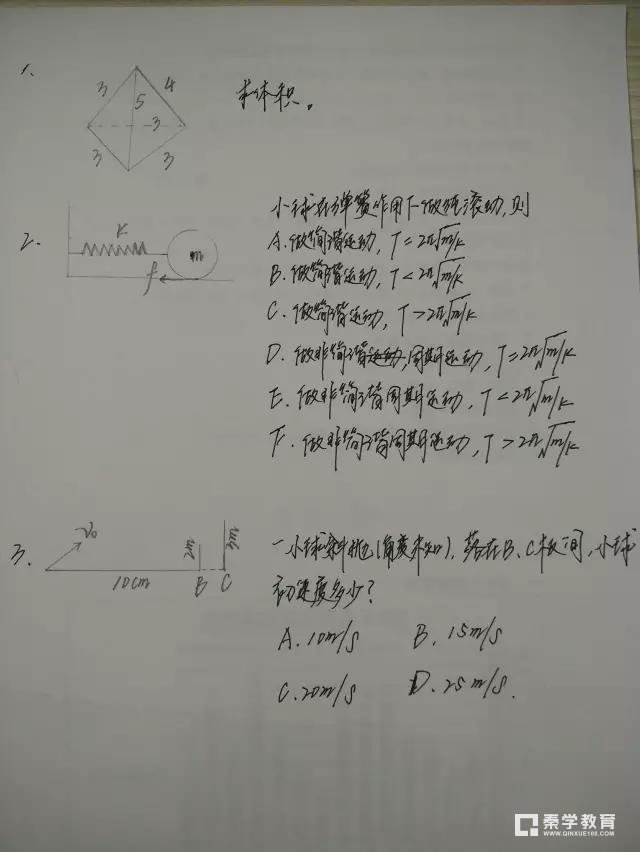 1.
3
4
5
3
3
3
求体积。
2.
K
m
f
小球在弹簧作用下做纯滚动,则
A.做简谐运动, T=2π√m/K
B.做简谐运动, T<2π√m/K
C.做简谐运动, T>2π√m/K
D.做非简谐周期运动, T=2π√m/K
E.做非简谐周期运动, T<2π√m/K
F.做非简谐周期运动, T>2π√m/K
3.
V₀
2m
3m
10cm
B
C
一小球斜抛(角度未知),落在B、C板间,小球
初速度多少?
A.10m/s
B.15m/s
C.20m/s
D.25m/s.
秦学教育
WWW.QINXUE100.COM